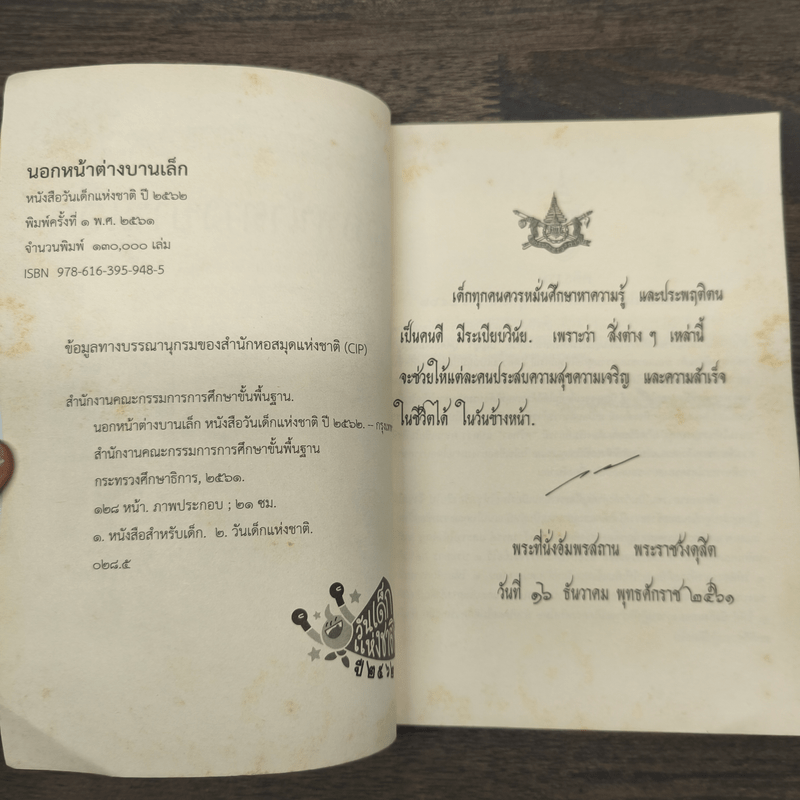 นอกหน้าต่างบานเล็ก
หนังสือวันเด็กแห่งชาติ ปี ๒๕๖๒
พิมพ์ครั้งที่ ๑ พ.ศ. ๒๕๖๑
จำนวนพิมพ์ ๑๓๐,๐๐๐ เล่ม
ISBN 978-616-395-948-5
ข้อมูลทางบรรณานุกรมของสำนักหอสมุดแห่งชาติ (CIP)
สำนักงานคณะกรรมการการศึกษาขั้นพื้นฐาน.
นอกหน้าต่างบานเล็ก หนังสือวันเด็กแห่งชาติ ปี ๒๕๖๒. –
สำนักงานคณะกรรมการการศึกษาขั้นพื้นฐาน
กระทรวงศึกษาธิการ, ๒๕๖๑.
๑๒๘ หน้า. ภาพประกอบ ; ๒๑ ซม.
๑. หนังสือสำหรับเด็ก. ๒. วันเด็กแห่งชาติ.
๐๒๘.๕
วันเด็ก
แห่งชาติ
ปี ๒๕๖๒
เด็กทุกคนควรหมั่นศึกษาหาความรู้ และประพฤติตน
เป็นคนดี มีระเบียบวินัย. เพราะว่า สิ่งต่าง ๆ เหล่านี้
จะช่วยให้แต่ละคนประสบความสุขความเจริญ และความสำเร็จ
ในชีวิตได้ ในวันข้างหน้า.
พระที่นั่งอัมพรสถาน พระราชวังดุสิต
วันที่ ๑๖ ธันวาคม พุทธศักราช ๒๕๖๑